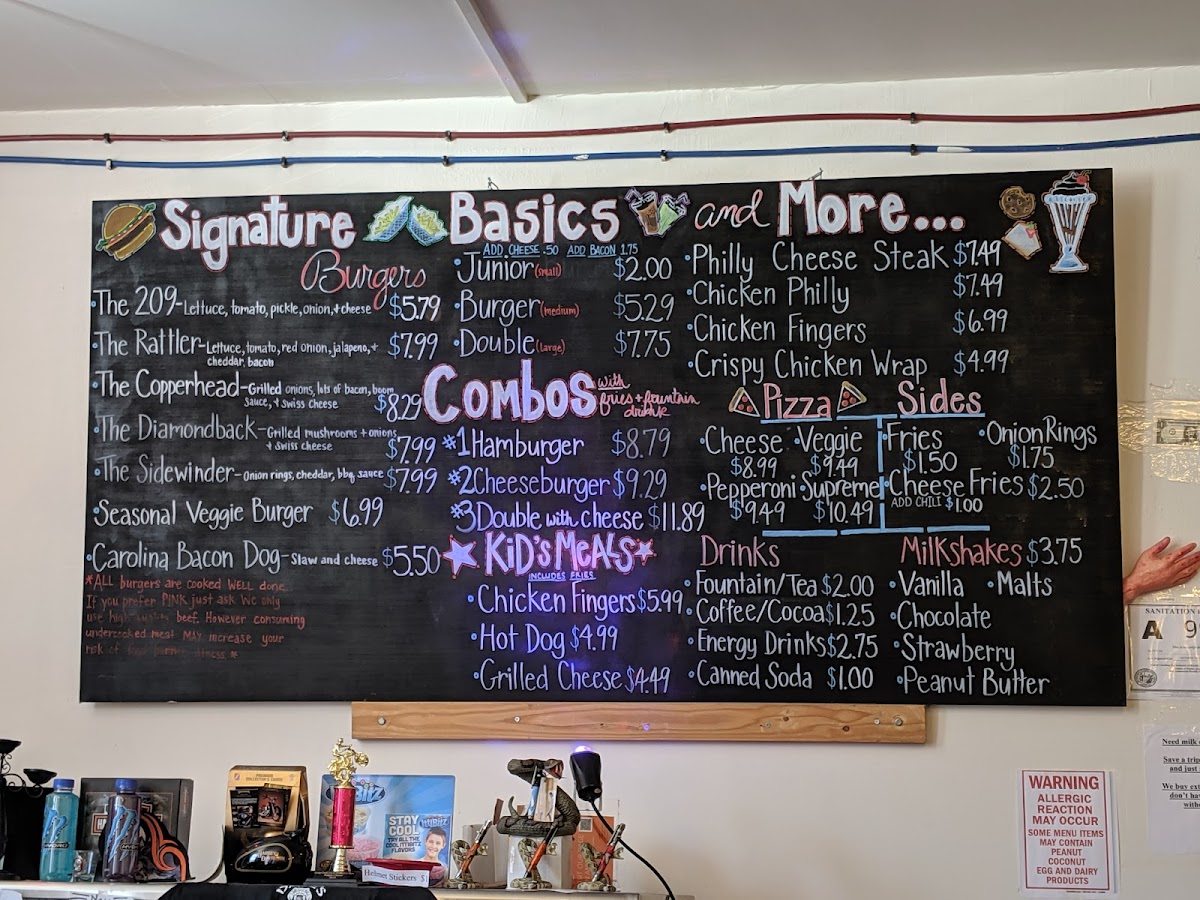 Signature
Burgers
•The 209-Lettuce, tomato, pickle, onion, + cheese $5.79
•The Rattler-Lettuce, tomato, red onion, jalapeño, +
cheddar, bacon $7.99
•The Copperhead-Grilled onions, lots of bacon, boom
sauce, + swiss cheese $8.29
•The Diamondback-Grilled mushrooms + onions
+ swiss cheese $7.99
•The Sidewinder-Onion rings, cheddar, bbq, sauce $7.99
•Seasonal Veggie Burger $6.99
•Carolina Bacon Dog-Slaw and cheese $5.50
*ALL burgers are cooked WELL done.
If you prefer PINK just ask. We only
use high beef. However consuming
undercooked meat MAY increase your
risk of
Basics
ADD CHEESE .50 ADD BACON 1.75
•Junior (small) $2.00
•Burger (medium) $5.29
•Double (large) $7.75
Combos with
fries + fountain
drink
#1 Hamburger $8.79
#2 Cheeseburger $9.29
#3 Double with cheese $11.89
KiD'S MeALS
INCLUDES FRIES
•Chicken Fingers $5.99
•Hot Dog $4.99
•Grilled Cheese $4.49
and More...
•Philly Cheese Steak $7.49
•Chicken Philly $7.49
•Chicken Fingers $6.99
•Crispy Chicken Wrap $4.99
Pizza
•Cheese •Veggie
$8.99 $9.49
•Pepperoni •Supreme
$9.49 $10.49
Sides
•Fries •Onion Rings
$1.50 $1.75
•Cheese Fries $2.50
ADD CHILI $1.00
Drinks
•Fountain/Tea $2.00
•Coffee/Cocoa $1.25
•Energy Drinks $2.75
•Canned Soda $1.00
Milkshakes $3.75
•Vanilla •Malts
•Chocolate
•Strawberry
•Peanut Butter
SANITATION
A 9
Need milk
Save a trip
and just
We buy ext
don't hav
with
WARNING
ALLERGIC
REACTION
MAY OCCUR
SOME MENU ITEMS
MAY CONTAIN
PEANUT
COCONUT
EGG AND DAIRY
PRODUCTS
STAY
COOL
TRY ALL THE
FLAVORS
Helmet Stickers $1